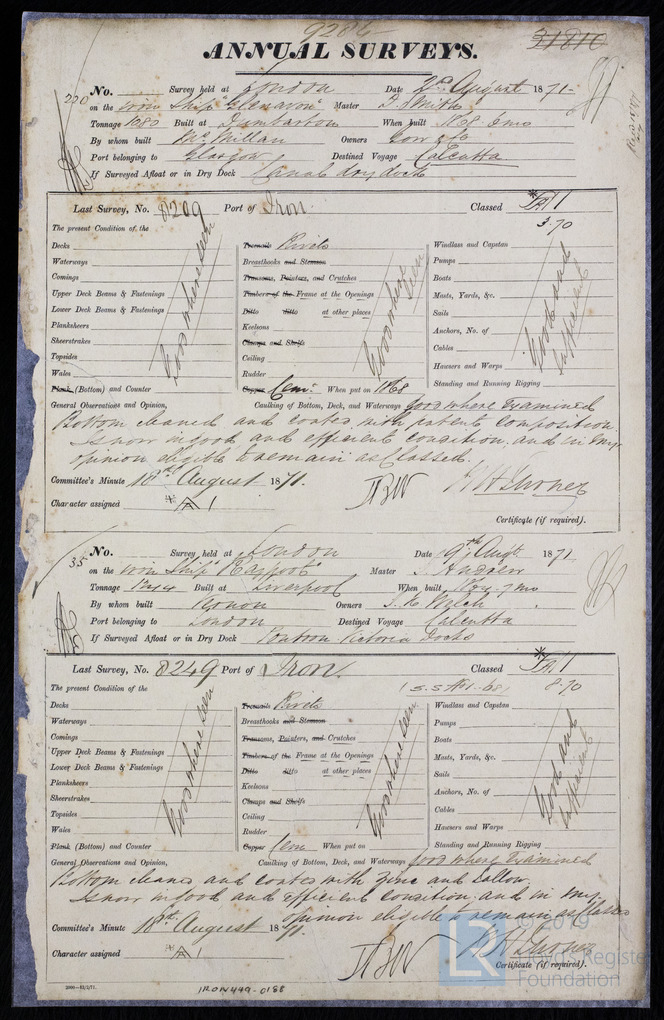 9286
31810
ANNUAL SURVEYS.
220
No. Survey held at London Date 2nd August 1871-
on the iron Ship "Glenavon" Master D. Smith
Tonnage 1080 Built at Dumbarton When built 1868 3mo
By whom built McMillan Owners Low & Co
Port belonging to Glasgow Destined Voyage Calcutta
If Surveyed Afloat or in Dry Dock Canal dry dock
Last Survey, No. 8209 Port of Iron. Classed A 1
3.70
The present Condition of the
Decks
Waterways
Comings
Upper Deck Beams & Fastenings
Lower Deck Beams & Fastenings
Planksheers
Sheerstrakes
Topsides
Wales
Plank (Bottom) and Counter
Good where seen
Treenails Rivets
Breasthooks and Stemson
Transoms, Pointers, and Crutches
Timbers of the Frame at the Openings
Ditto ditto at other places
Keelsons
Clamps and Shelfs
Ceiling
Rudder
Copper Cem. When put on 1868
Good where seen
Windlass and Capstan
Pumps
Boats
Masts, Yards, &c.
Sails
Anchors, No. of
Cables
Hawsers and Warps
Standing and Running Rigging
Good and sufficient
General Observations and Opinion, Caulking of Bottom, Deck, and Waterways good where examined
Bottom cleaned and coated with patent composition.
Is now in good and efficient condition, and in my
opinion eligible to remain as Classed.
Committee's Minute 18th August 1871.
Character assigned A 1
Certificate (if required).
35
No. Survey held at London Date 9th Augt 1871
on the iron Ship "Rajpoot" Master Andrew
Tonnage Built at Liverpool When built 7 mo
By whom built Vernon Owners
Port belonging to London Destined Voyage Calcutta
If Surveyed Afloat or in Dry Dock Pontoon Victoria Docks
Last Survey, No. 8249 Port of Iron. Classed A 1
8.70
The present Condition of the
Decks
Waterways
Comings
Upper Deck Beams & Fastenings
Lower Deck Beams & Fastenings
Planksheers
Sheerstrakes
Topsides
Wales
Plank (Bottom) and Counter
Good where seen
Treenails Rivets
Breasthooks and Stemson
Transoms, Pointers, and Crutches
Timbers of the Frame at the Openings
Ditto ditto at other places
Keelsons
Clamps and Shelfs
Ceiling
Rudder
Copper Cem When put on
Good where seen
Windlass and Capstan
Pumps
Boats
Masts, Yards, &c.
Sails
Anchors, No. of
Cables
Hawsers and Warps
Standing and Running Rigging
Good and sufficient
General Observations and Opinion, Caulking of Bottom, Deck, and Waterways good where examined
Bottom cleaned and coated with zinc and tallow.
Is now in good and efficient condition, and in my
opinion eligible to remain as classed
Committee's Minute 18th August 1871.
Character assigned A 1
Certificate (if required).
IRON449-0188
© 2019
LR
Lloyd's Register
Foundation